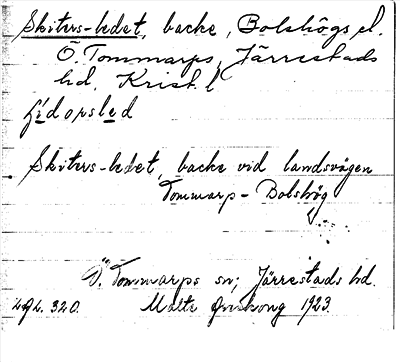 Skiters-ledet, backe, Bolshögs el.
Ö. Tommarps, Järrestads
hd. Krist. l
Skiters-ledet, backe vid landsvägen
Tommarp - Bolshög
Ö. Tommarps sn; Järrestads hd.
320. Malte 1923.